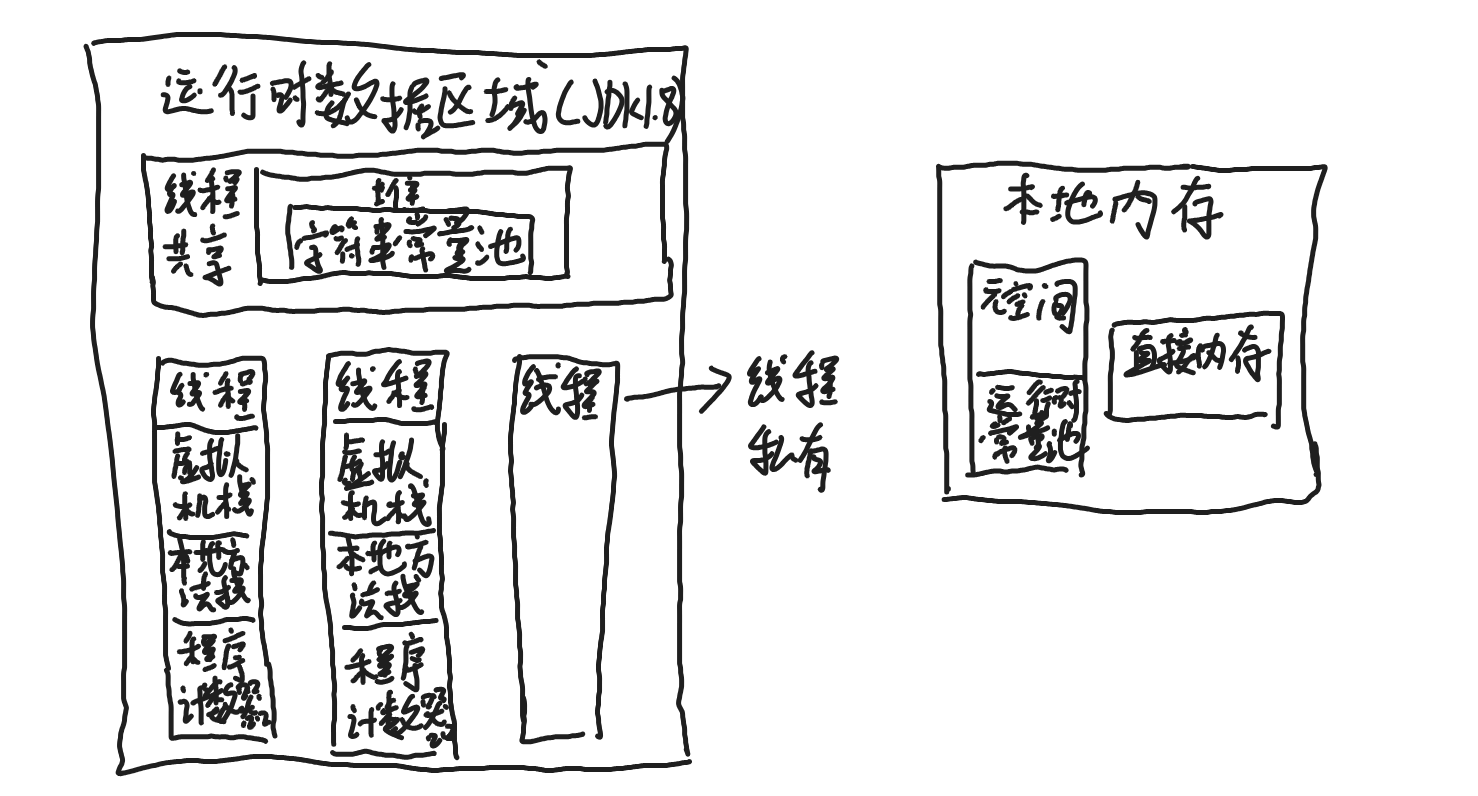 运行时数据区域(JDK1.8)
线程
共享
堆
字符串常量池
线程
虚拟
机栈
本地方
法栈
程序
计数器
线程
虚拟
机栈
本地方
法栈
程序
计数器
线程
线程
私有
本地内存
元空间
运行时
常量池
直接内存